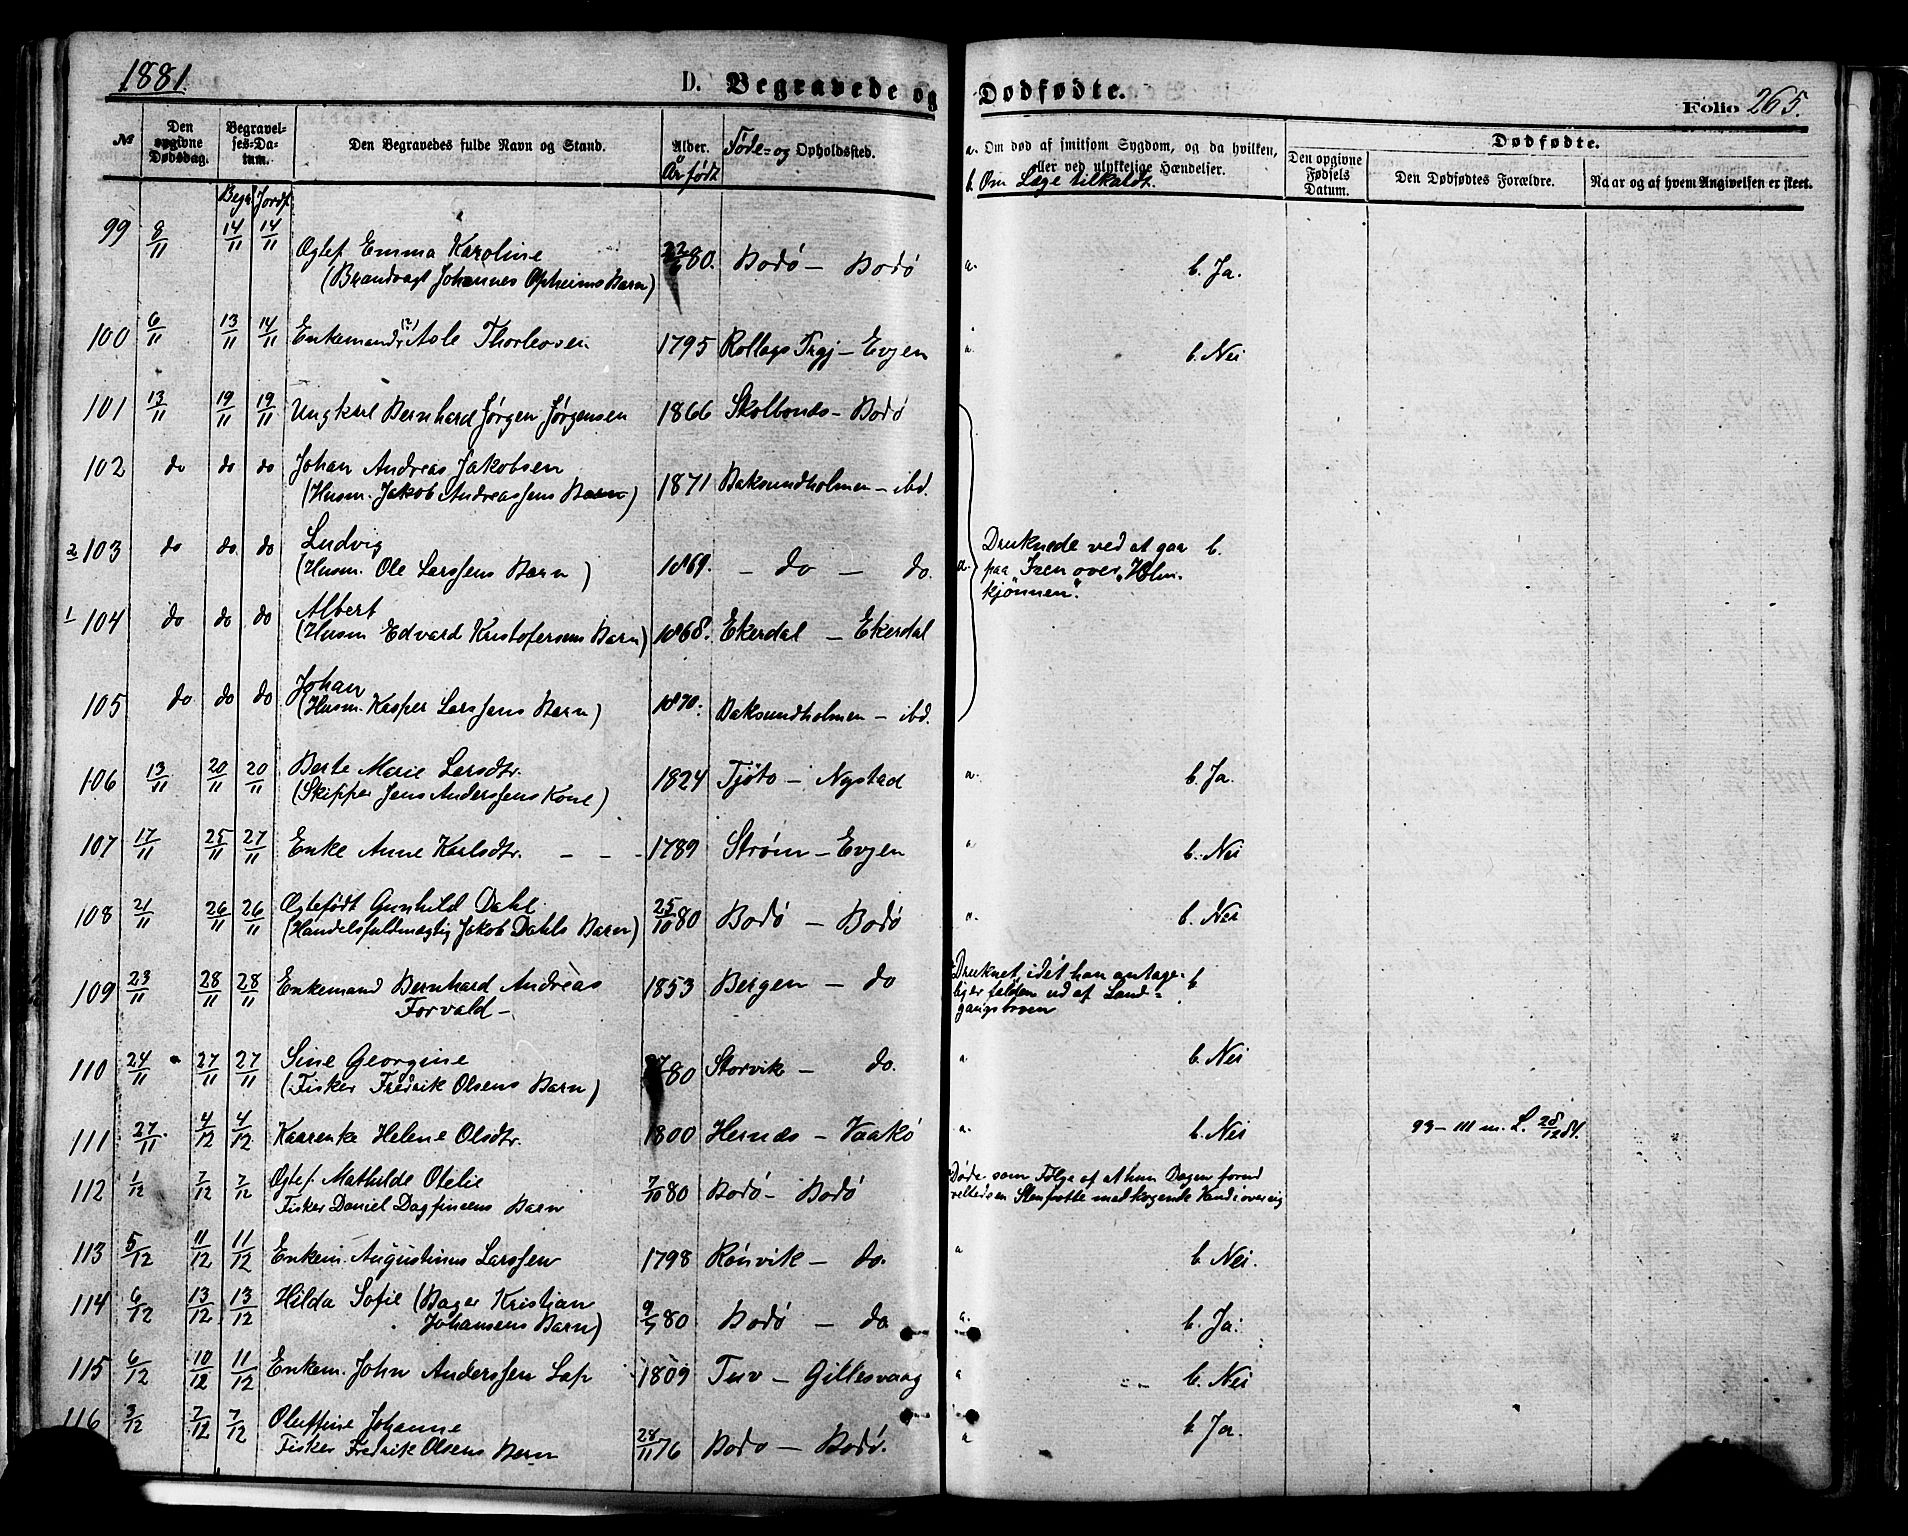 1881.
D. Begravede og Dødfødte.
Folio 265.
№ Den opgivne Dødsdag. Begravelses-Datum. Den Begravedes fulde Navn og Stand. Alder. Aar født Føde- og Opholdssted. a. Om død af smitsom Sygdom, og da hvilken, eller ved ulykkelige Hændelser.
b. Om Læge tilkaldt.
Dødfødte.
Den opgivne Fødsels Datum. Den Dødfødtes Forældre. Naar og af hvem Angivelsen er skeet.
Begr Jordf.
99 8/11 14/11 14/11 Ægtef. Emma Karoline
(Brandvagt Johannes Opheims Barn) 80. Bodø – Bodø a. b. Ja.
100 6/11 13/11 14/11 Enkemand (?) Asle Thorleosen 1795 Rollags Prgj – Evjen a. b. Nei
101 13/11 19/11 19/11 Ungkarl Bernhard Jørgen Jørgensen 1866 – Bodø
102 do do do Johan Andreas Jakobsen
(Husm. Jakob Andreassens Barn) 1871 Baksundholmen – ibd.
2 103 do do do Ludvig
(Husm. Ole Larssens Barn) 1869. – do – do. a. Druknede ved at gaa b.
paa Isen over "Holm-
kjønnen".
1 104 do do do Albert
(Husm Edvard Kristofersens Barn) 1868. Ekerdal – Ekerdal
105 do do do Johan
(Husm. Kasper Larssens Barn) 1870. Baksundholmen – ibd.
106 13/11 20/11 20/11 Berte Marie Larsdtr.
(Skipper Jens Anderssens Kone) 1824 Tjøto – Nystad a. b. Ja.
107 17/11 25/11 27/11 Enke Anne Karlsdtr. – – – 1789 Strøm – Evjen a b. Nei
108 21/11 26/11 26/11 Ægtefødt Gunhild Dahl
(Handelsfuldmægtig Jakob Dahls Barn) 25/10 80 Bodø – Bodø a. b. Nei
109 23/11 28/11 28/11 Enkemand Bernhard Andreas
Forvald – 1853 Bergen – do Druknet, idet han antage-
ligt er falden ud af Land-
gangsbroen b
110 24/11 27/11 27/11 Sine Georgine
(Fisker Fredrik Olsens Barn) 80 Storvik – do. a b. Nei
111 27/11 4/12 4/12 Kaarenke Helene Olsdtr. 1800 Hernæs – Vaakø a. b. Nei 93 – 111 m. L. 28/12 81.
112 1/12 7/12 7/12 Ægtef. Mathilde Otelie
Fisker Daniel Dagfinsens Barn 7/10 80 Bodø – Bodø Døde som Følge af at hun Dagen forud
væltede en Stenpotte med kogende Vand over sig
113 5/12 11/12 11/12 Enkem. Augustinus Larssen 1798 Rønvik – do. a b. Nei.
114 6/12 13/12 13/12 Hilda Sofie (Bager Kristian
Johansens Barn) 9/7 80 Bodø – do a. b. Ja.
115 6/12 10/12 11/12 Enkem. John Anderssen Lap 1809 Tuv – Gillesvaag a b. Nei
116 3/12 7/12 7/12 Oluffine Johanne
Fisker Fredrik Olsens Barn 28/11 76 Bodø – Bodø. a b Ja.